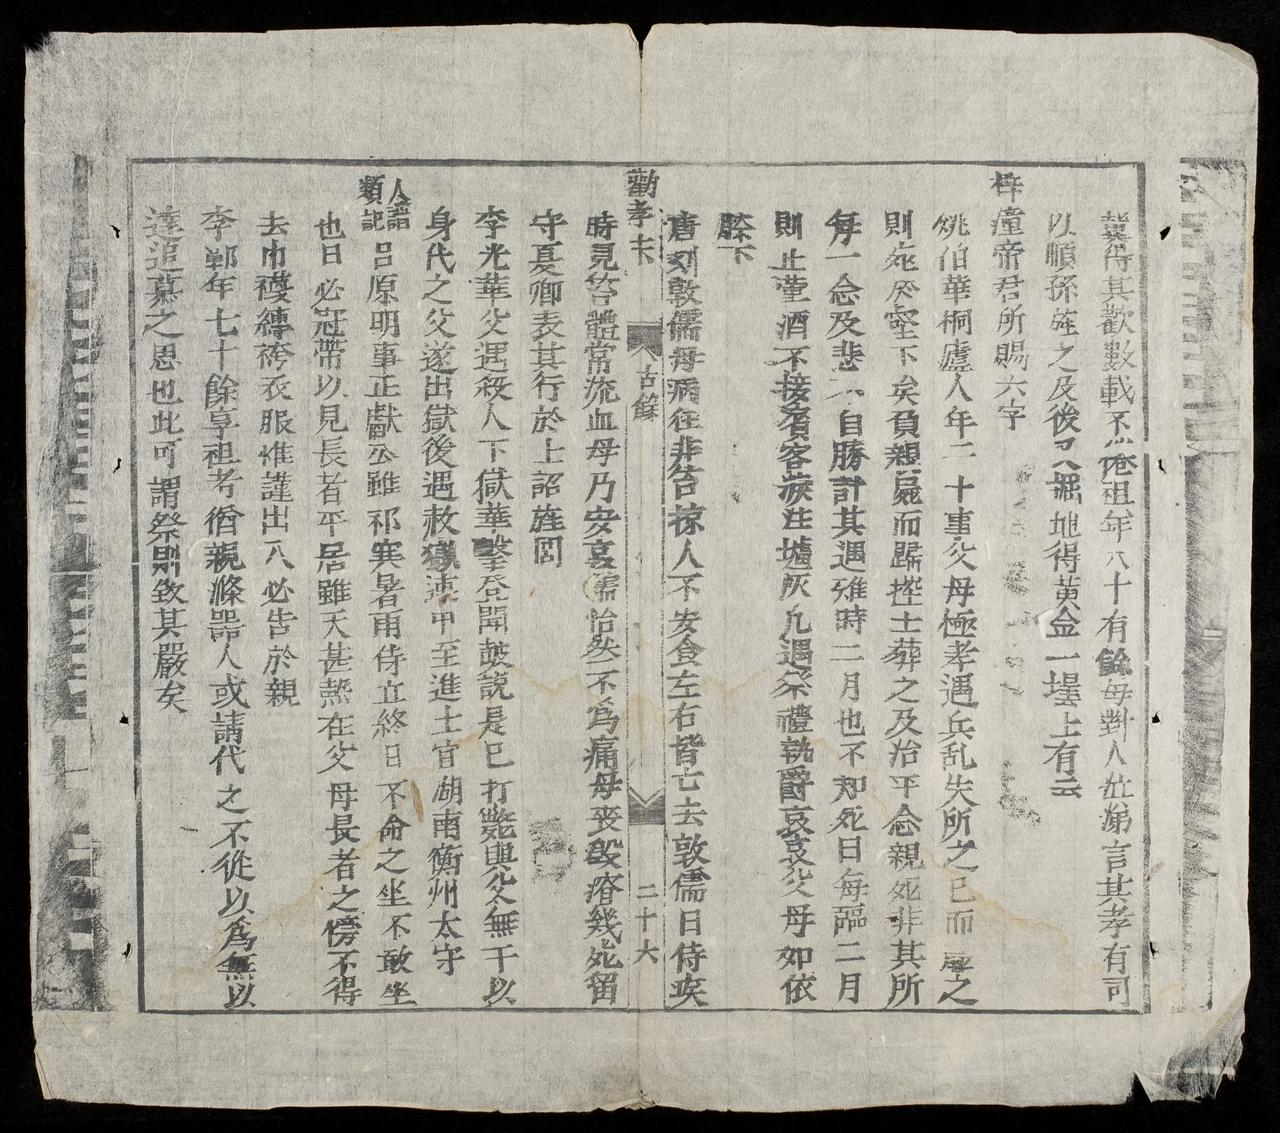 冀得其歡數載不怠祖年八十有餘每對人壯涕言其孝有司
以順孫旌之及後又掘地得黃金一墁上有云
梓潼帝君所賜六字
姚伯華桐廬人年二十事父母極孝遇兵乱失所之已而尋之
則死於壑下矣負親屍而歸控土葬之及治平念親死非其所
每一念及悲不自勝計其遇难時二月也不知死日每臨二月
則止葷酒不接賓客凡遇祭禮執爵哀哀父母如依
膝下
唐刘敦儒母病狂非笞掠人不安食左右皆亡去敦儒日侍疾
時見笞體常流血母乃安哀儒怡然不為痛母喪毀瘠幾死留
守夏卿表其行於上詔旌閭
勸孝 古錄 二十六
李光華父遇殺人下獄華擊登聞鼓說是已打斃與父無干以
身代之父遂出獄後遇赦獲連甲至進士官湖南衡州太守
人譜類記 吕原明事正獻公雖祁寒暑雨侍立終日不命之坐不敢坐
也日必冠帶以見長者平居雖天甚熱在父母長者之傍不得
去巾襪縛袴衣服惟謹出入必告於親
李鄲年七十餘享祖考猶親滌器人或請代之不從以為無以
達追慕之思也此可謂祭則致其嚴矣